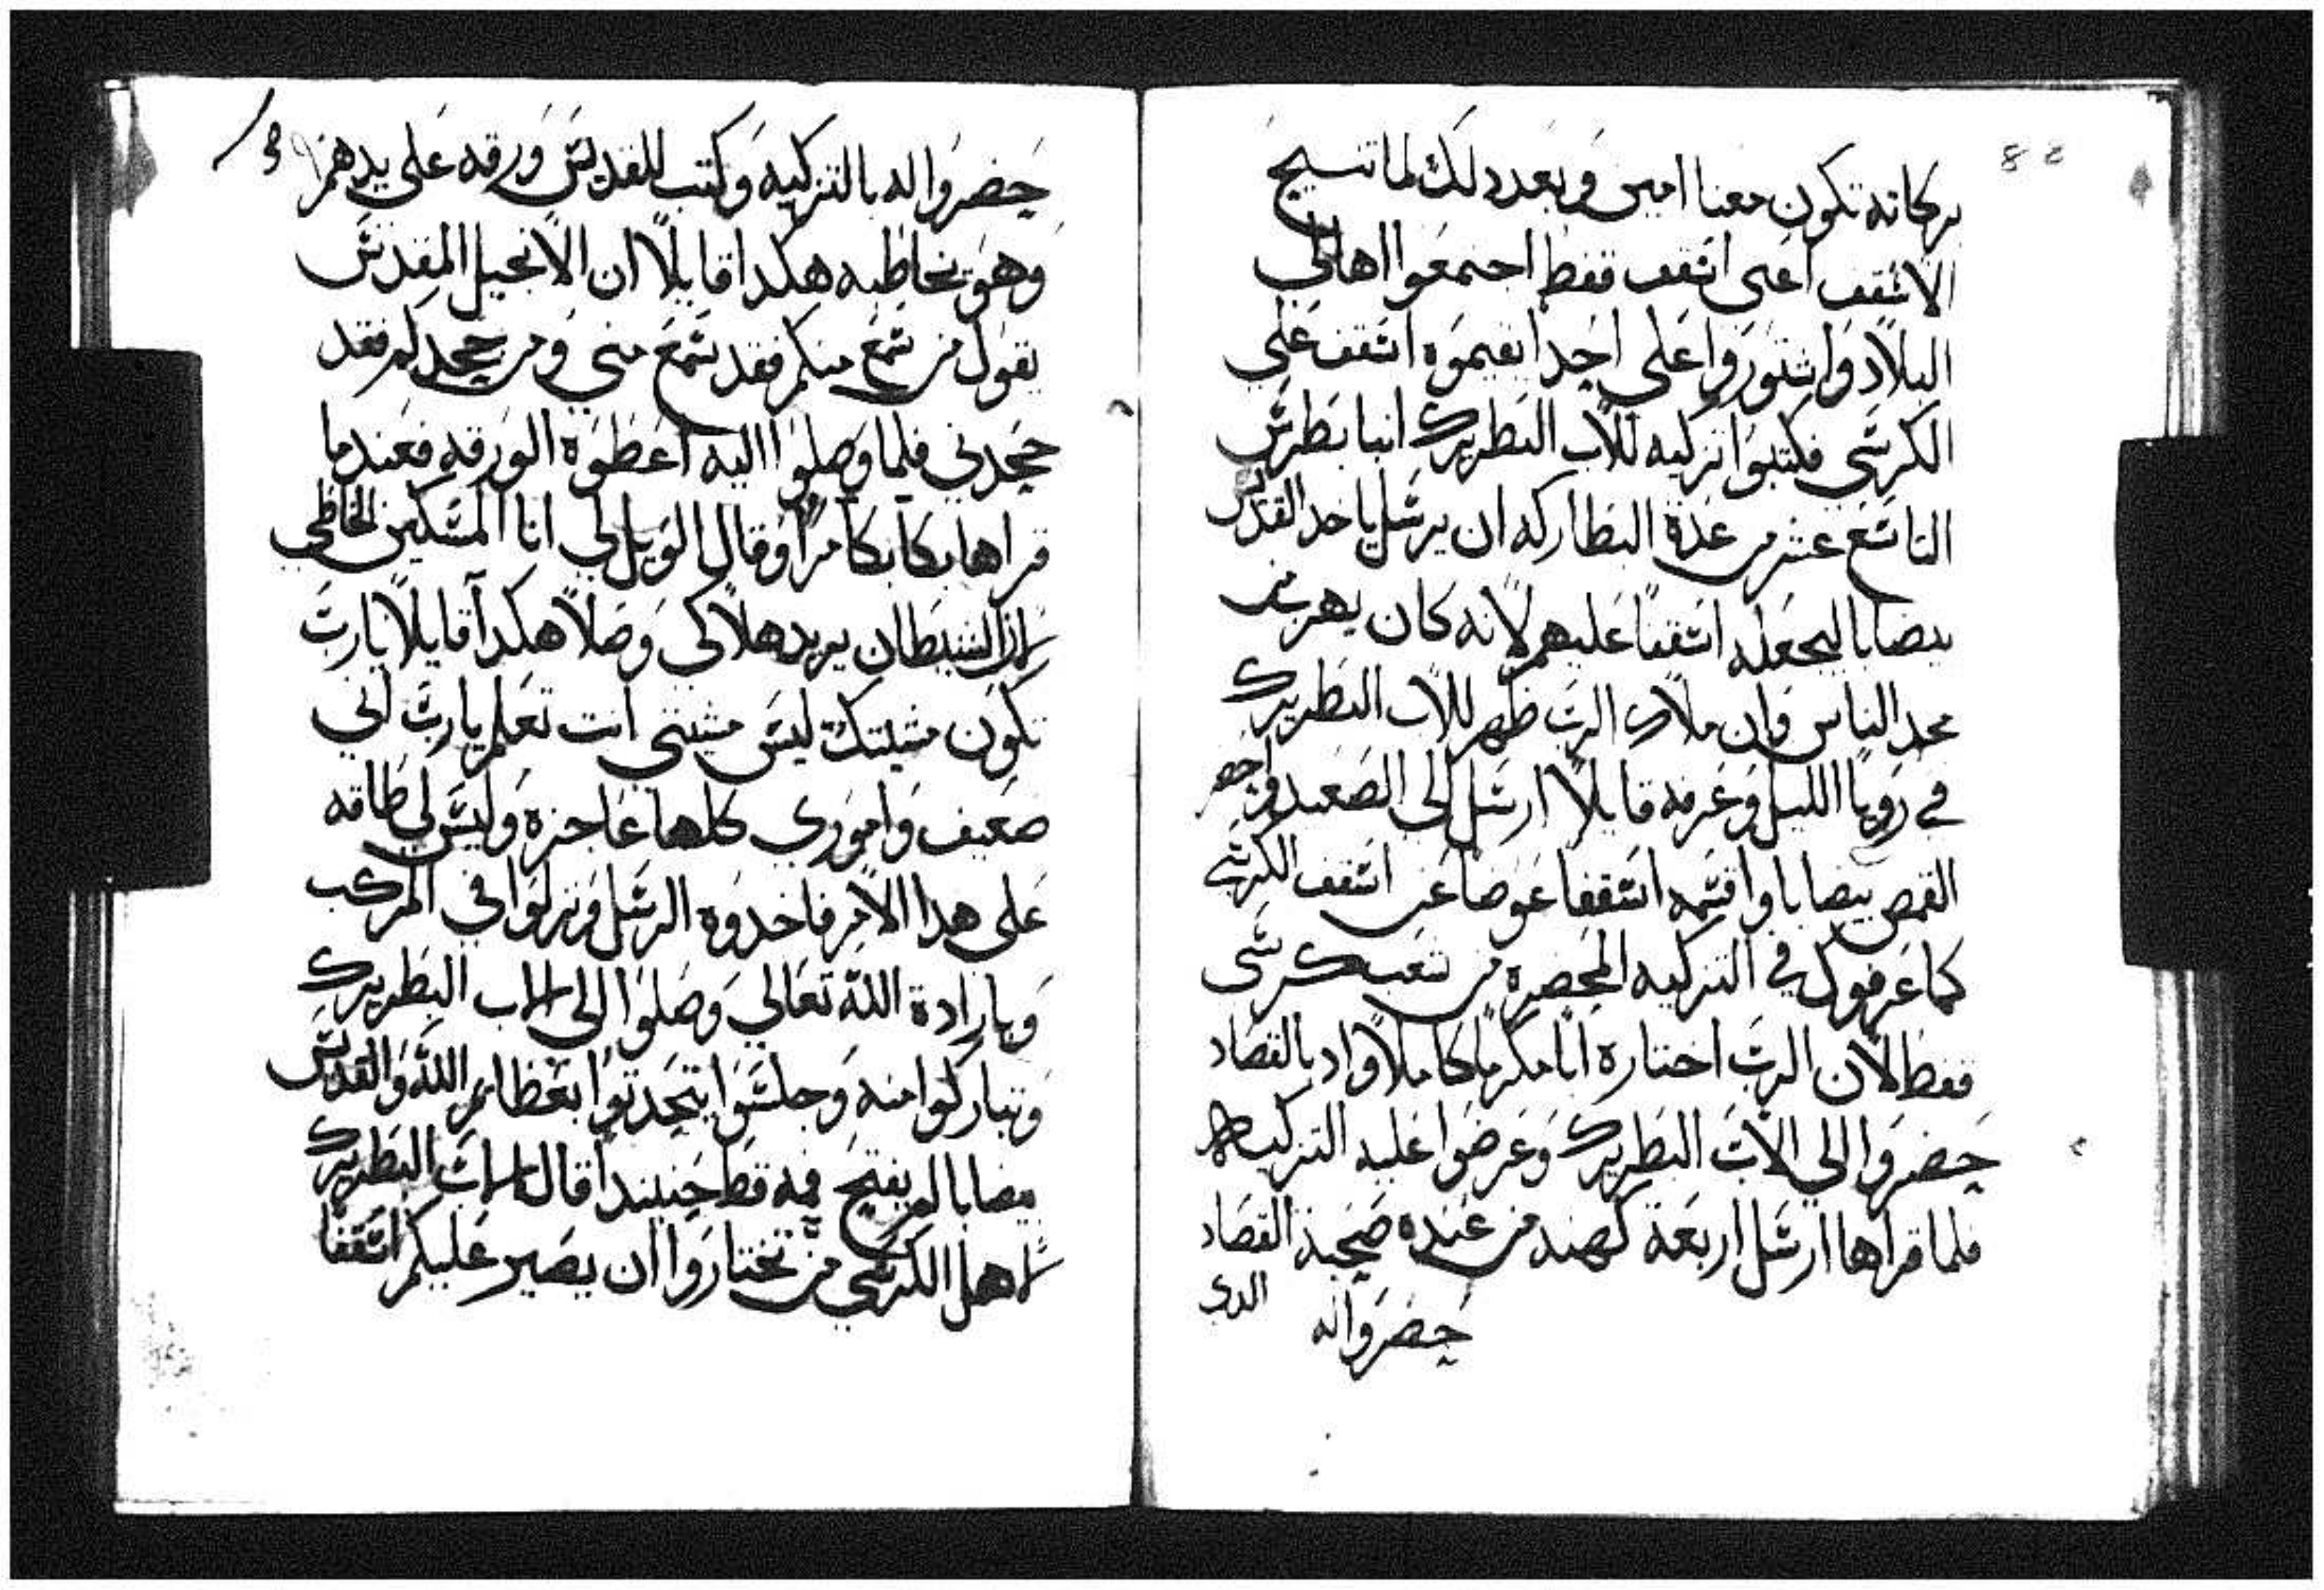 بركاته تكون معنا امين وبعد دلك لما تنيح
الاسقف اعنى اسقف قفط اجتمعوا اهالي
البلاد واشتوروا على احدا يقيموه اسقف على
الكرسي فكتبوا تزكيه للاب البطريرك انبا بطرس
التاسع عشر من عدة البطاركه ان يرسل ياخد القديس
بيضابا ليجعله اسقفا عليهم لانه كان يهرب من
مجد الناس وان ملاك الرب ظهر للاب البطريرك
في رويا الليل وعرفه قايلا ارسل الى الصعيد واحضر
القمص بيضابا واقسمه اسقفا عوضا عن اسقف الكرسي
كما عرفوك في التزكيه المحضره من شعب كرسى
قفط لان الرب اختاره انا مكرما كاملا واد بالقصاد
حضروا الي الاب البطريرك وعرضوا عليه التزكيه
فلما قراها ارسل اربعة كهنه من عنده صحبة القصاد
الدى
حضروا له
حضروا له بالتزكيه وكتب للقديس ورقه على يدهم
وهو يخاطبه هكدا قايلا ان الانجيل المقدس
يقول من سمع منكم فقد سمع مني ومن جحدكم فقد
جحدني فلما وصلوا اليه اعطوه الورقه فعندما
قراها بكا بكا مرا وقال الويل لي انا المسكين الخاطى
لان الشيطان يريد هلاكى وصلا هكدا قايلا يارب
تكون مشيتك ليس مشيتي انت تعلم يارب اني
ضعيف واموري كلها عاجزه وليس لي طاقه
على هدا الامر فاخدوه الرسل ونزلوا في المركب
وبارادة الله تعالي وصلوا الى الاب البطريرك
وتباركوا منه وجلسوا يتحدتوا بعظايم الله والقديس
بيضابا لم يفتح فمه قط حينيدا قال الاب البطريرك
لاهل الكرسي من تختاروا ان يصير عليكم اسقفا